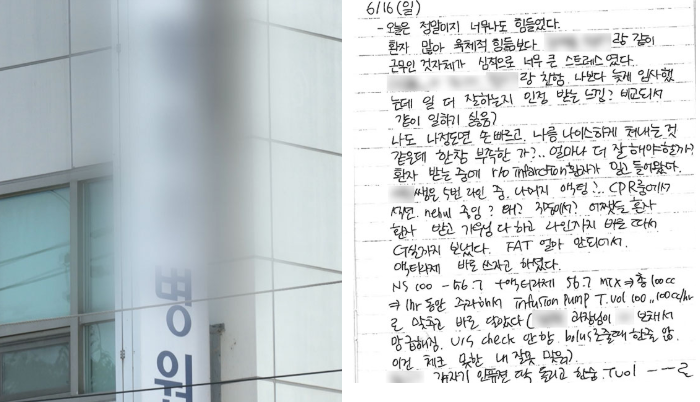 병원
6/16(일)
- 오늘은 정말이지 너무나도 힘들었다.
환자 많아 육체적 힘듦보다 랑 같이
근무인 것자체가 심적으로 너무 큰 스트레스 였다.
랑 친함. 나보다 늦게 입사했
는데 일 더 잘하는지 인정 받는 느낌? 비교되서
같이 일하기 싫음)
나도 나정도면 손빠르고, 나름 나이스하게 쳐내는 것
같은데 한참 부족한 가?.. 얼마나 더 잘 해야할까?
환자 받는 중에 r/o infarction환자가 밀고 들어왔다.
쌤은 5번 라인 중, 나머지 액팅?.. CPR룸에서
석션. nebul 중임? 왜? 직접해서? 어쨌든 환자
환자 받고 기우님 다 하고 라인까지 바로 따서
CT실까지 보냈다. FAT 얼마 안되어서.
액티라제 바로 쓰자고 하셨다.
NS 100 - 56.7 +액티라제 56.7 mix ⇒ 총 100cc
⇒ 1hr 동안 주라해서 infusion pump T.vol 100, 100cc/hr
로 맞추고 바로 달았다( 과장님이 보채서
망급해짐. V/S check 안함. bolus 2줄때 한줄 앎.
이건 체크 못한 내 잘못 맞음)
갑자기 인퓨젼 딱 들리고 한숨. T.vol ---로